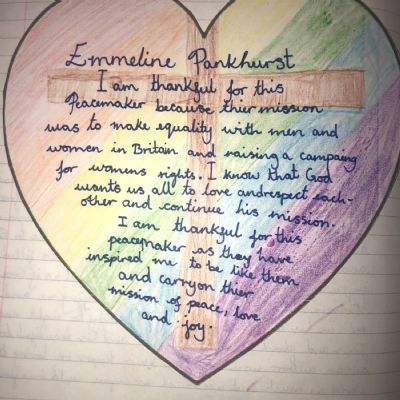 Emmeline Pankhurst
I am thankful for this
Peacemaker because thier mission
was to make equality with men and
women in Britain and raising a campaing
for womens rights. I know that God
wants us all to love andrespect each-
other and continue his mission.
I am thankful for this
peacemaker as they have
inspired me to be like them
and carryon thier
mission of peace, love
and joy.